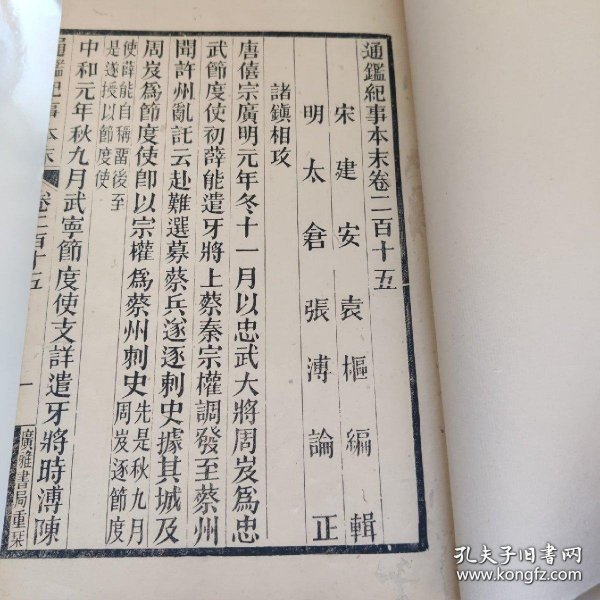 通鑑紀事本末卷二百十五
宋建安袁樞編輯
明太倉張溥論正
諸鎮相攻
唐僖宗廣明元年冬十一月以忠武大將周岌為忠
武節度使初薛能遣牙將上蔡秦宗權調發至蔡州
聞許州亂託云赴難選募蔡兵遂逐刺史據其城及
周岌為節度使卽以宗權為蔡州刺史先是秋九月
周岌逐節度
使薛能自稱留後至
是遂授以節度使
中和元年秋九月武寧節度使支詳遣牙將時溥陳
通鑑紀事本末
卷二百十五
一
廣雅書局重栞
孔夫子旧书网
www.kongfz.com